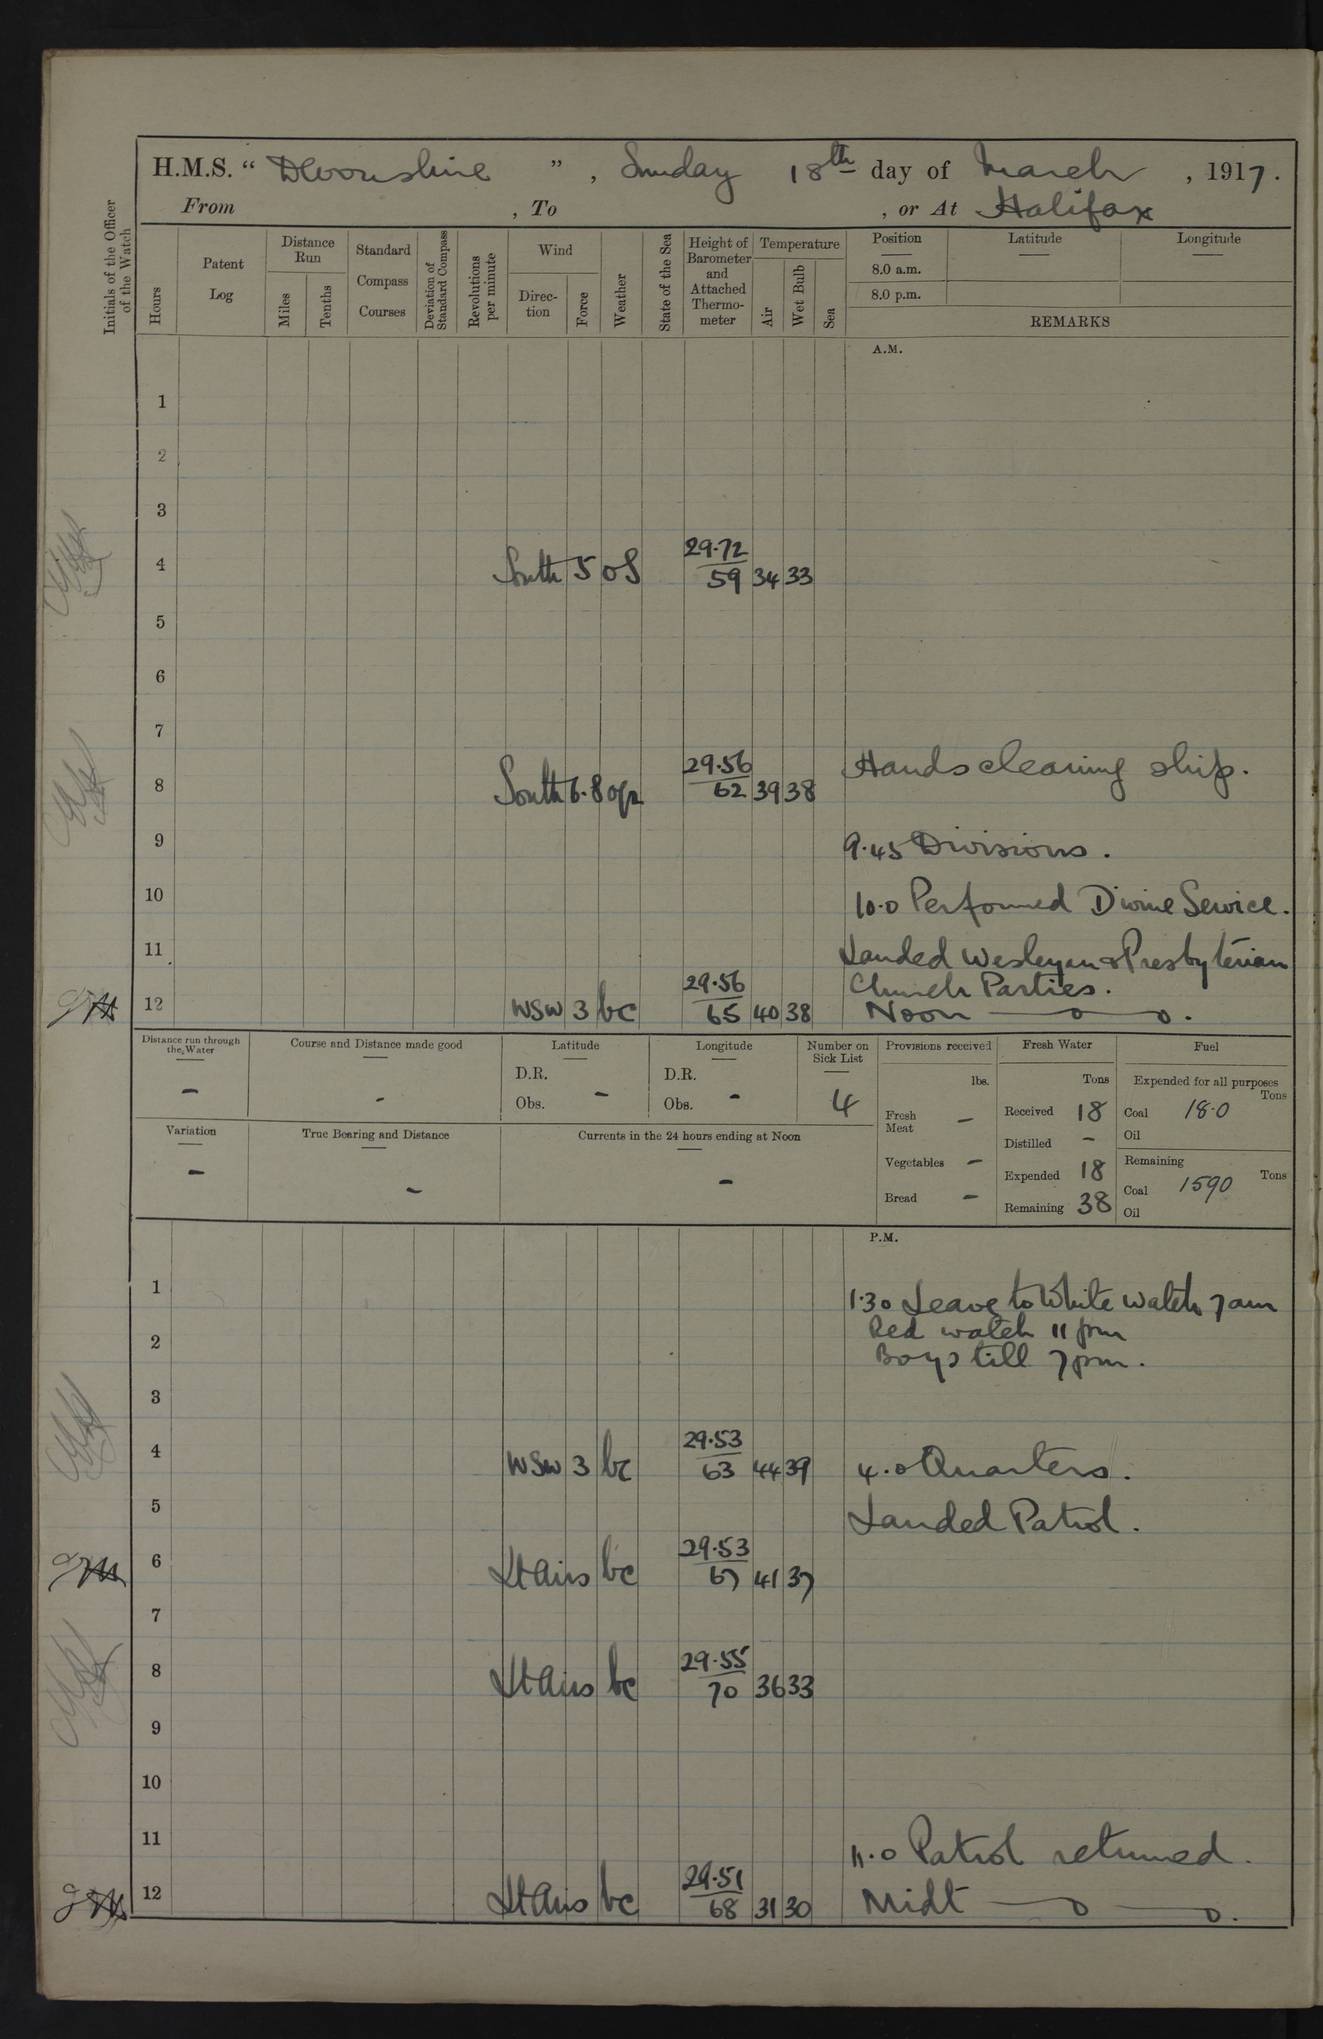 H.M.S. " Devonshire ", Sunday 18th day of March, 1917.
From , To , or At Halifax
Initials of the Officer of the Watch
Hours
Patent Log
Distance Run
Miles
Tenths
Standard Compass Courses
Deviation of Standard Compass
Revolutions per minute
Wind
Direction
Force
Weather
State of the Sea
Height of Barometer and Attached Thermometer
Temperature
Air
Wet Bulb
Sea
Position
8.0 a.m.
8.0 p.m.
Latitude
Longitude
REMARKS
A.M.
1
2
3
4 South 5 os 29.72 59 34 33
5
6
7
8 South 6.8 opr 29.56 62 39 38 Hands cleaning ship.
9 9.45 Divisions.
10 10.0 Performed Divine Service.
11 Landed Wesleyan & Presbyterian
Church Parties.
12 WSW 3 bc 29.56 65 40 38 Noon
Distance run through the Water
-
Course and Distance made good
-
Latitude
D.R.
Obs. -
Longitude
D.R.
Obs. -
Number on Sick List
4
Provisions received
lbs.
Fresh Meat -
Vegetables -
Bread -
Fresh Water
Tons
Received 18
Distilled -
Expended 18
Remaining 38
Fuel
Expended for all purposes
Tons
Coal 18.0
Oil
Remaining
Tons
Coal 1590
Oil
Variation
-
True Bearing and Distance
-
Currents in the 24 hours ending at Noon
-
P.M.
1 1.30 Leave to White watch 7am
Red watch 11 pm
2 Boys till 7pm.
3
4 WSW 3 bc 29.53 63 44 39 4.0 Quarters.
5 Landed Patrol.
6 Lt airs bc 29.53 67 41 37
7
8 Lt airs bc 29.55 70 36 33
9
10
11 11.0 Patrol returned.
12 Lt airs bc 29.51 68 31 30 Midt